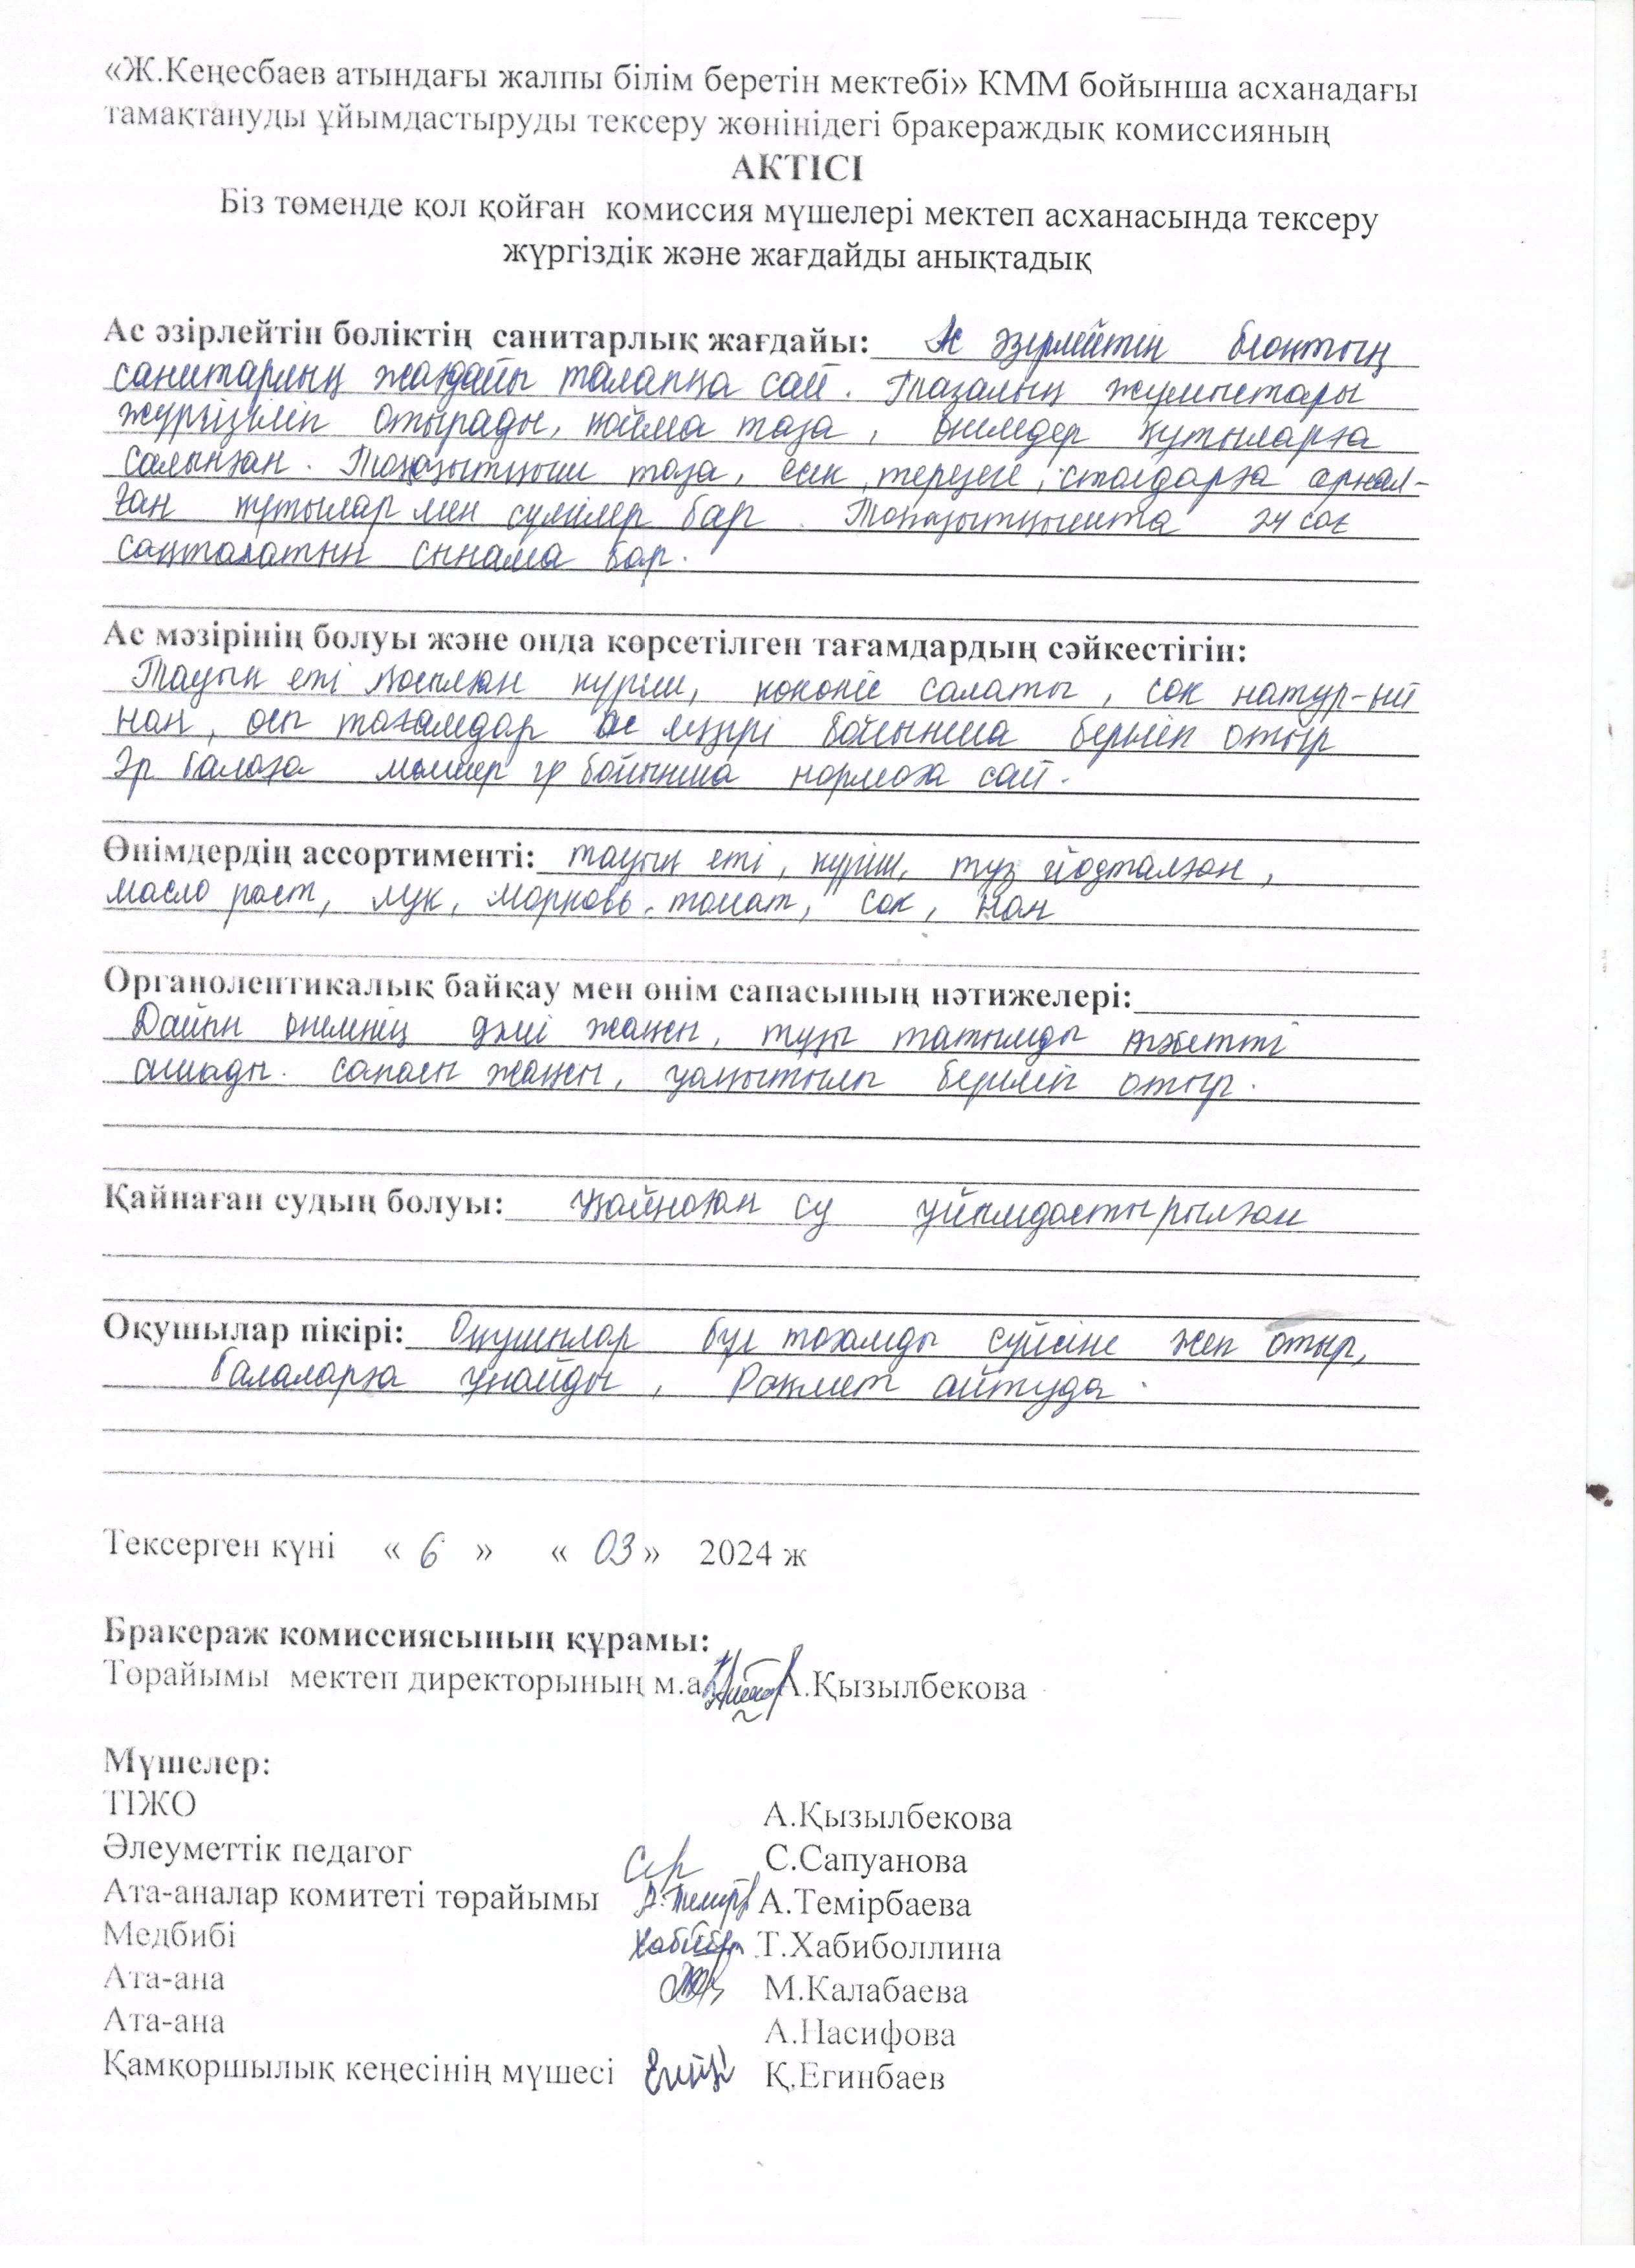 «Ж.Кеңесбаев атындағы жалпы білім беретін мектебі» КММ бойынша асханадағы
тамақтануды ұйымдастыруды тексеру жөнінідегі бракераждық комиссияның
АКТІСІ
Біз төменде қол қойған комиссия мүшелері мектеп асханасында тексеру
жүргіздік және жағдайды анықтадық
Ас әзірлейтін бөліктің санитарлық жағдайы: Ас әзірлейтін блоктың
санитарлық жағдайы талапқа сай. Тазалық жұмыстары
жүргізіліп отырады, қойма таза, өнімдер құтыларға
салынған. Тоңазытқыш таза, есік, терезе, столдарға арнал-
ған құтылар мен сүлгілер бар. Тоңазытқышта 24 сағ
сақталатын сынама бар.
Ас мәзірінің болуы және онда көрсетілген тағамдардың сәйкестігін:
Тауық еті қосылған күріш, көкөніс салаты, сок натур-ый
нан, осы тағамдар ас мәзірі бойынша беріліп отыр
Әр балаға мөлшер гр бойынша нормаға сай.
Өнімдердің ассортименті: тауық еті, күріш, тұз йодталған,
масло раст, лук, морковь, томат, сок, нан
Органолептикалық байқау мен өнім сапасының нәтижелері:
Дайын өнімнің дәмі жақсы, тұзы татымды тәбетті
ашады. сапасы жақсы, уақытылы беріліп отыр.
Қайнаған судың болуы: Қайнаған су ұйымдастырылған
Оқушылар пікірі: Оқушылар бұл тағамды сүйсіне жеп отыр,
балаларға ұнайды, Рахмет айтуда.
Тексерген күні « 6 » « 03 » 2024 ж
Бракераж комиссиясының құрамы:
Торайымы мектеп директорының м.а А.Қызылбекова
Мүшелер:
ТІЖО А.Қызылбекова
Әлеуметтік педагог С.Сапуанова
Ата-аналар комитеті төрайымы А.Темірбаева
Медбибі Т.Хабиболлина
Ата-ана М.Калабаева
Ата-ана А.Насифова
Қамқоршылық кеңесінің мүшесі Қ.Егинбаев